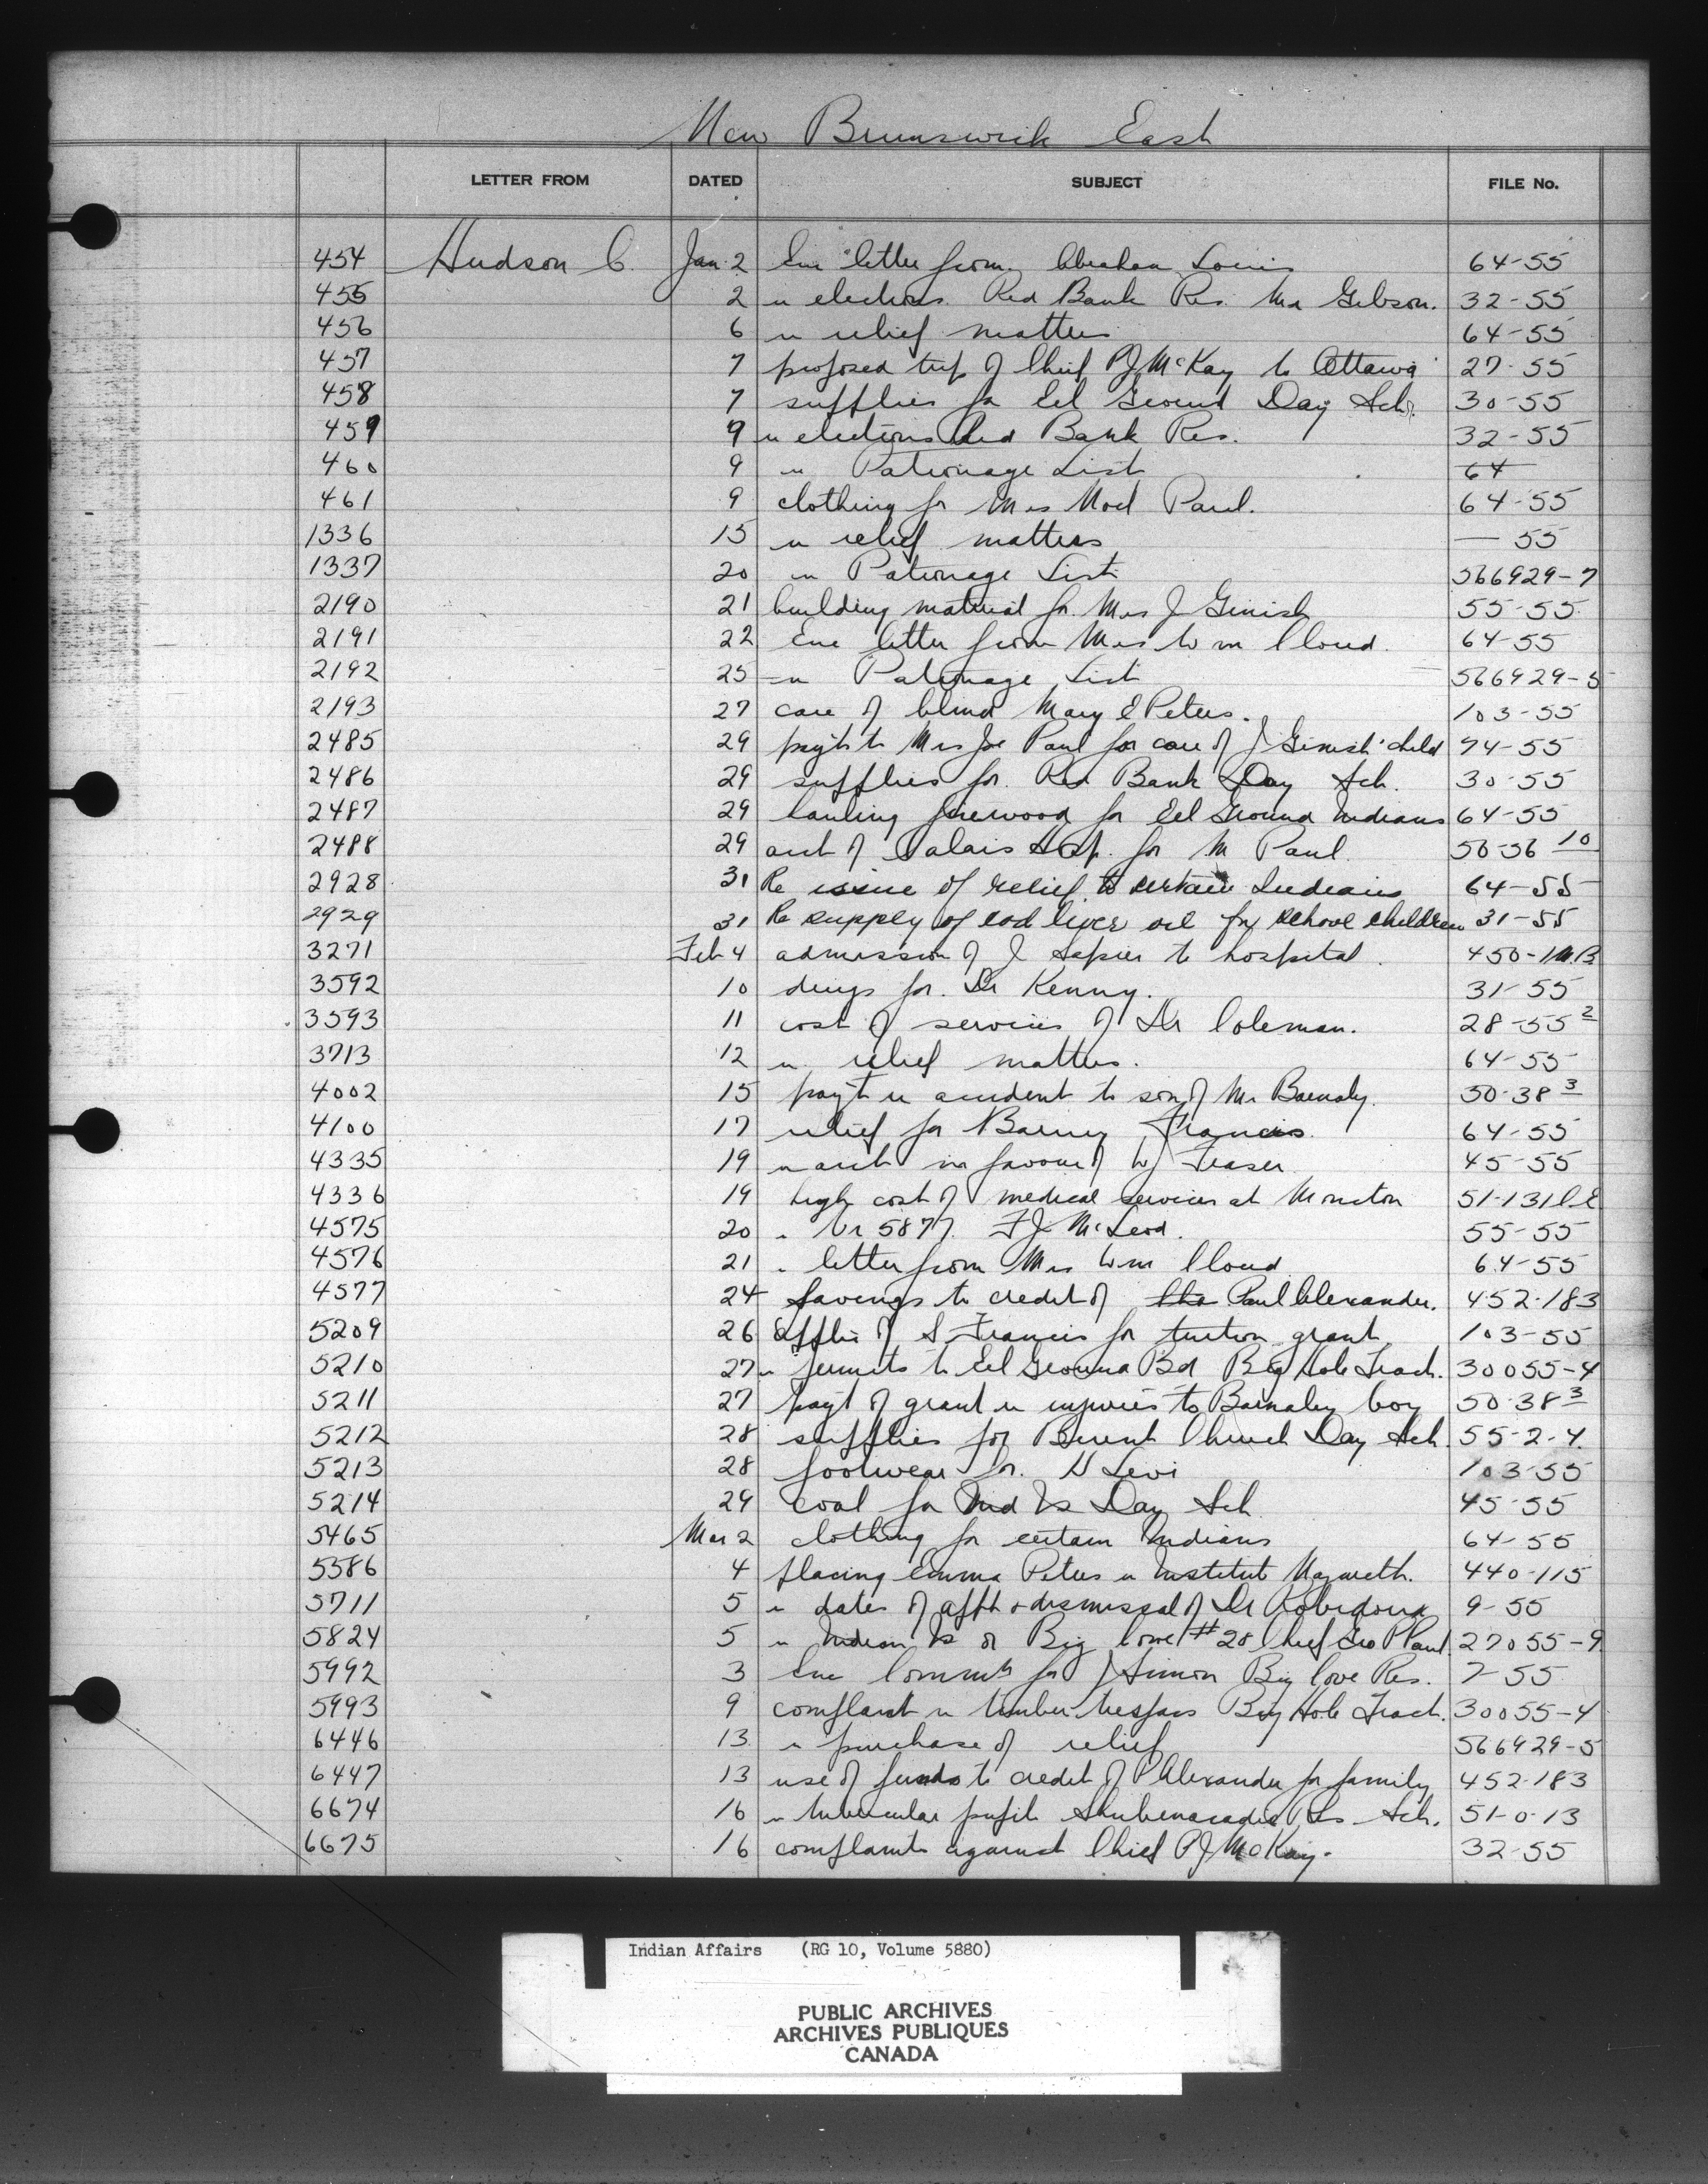 New Brunswick East
LETTER FROM DATED SUBJECT FILE No.
454 Hudson C. Jan 2 Enc letter from Abraham Louis 64-55
455 2 re elections Red Bank Res. Gibson. 32-55
456 6 re relief matters 64-55
457 7 proposed trip of Chief PJ McKay to Ottawa 27-55
458 7 supplies for Eel Ground Day Sch. 30-55
459 9 re elections Red Bank Res. 32-55
460 9 re Patronage List 64
461 9 clothing for Mrs Noel Paul. 64-55
1336 15 re relief matters — 55
1337 20 re Patronage List 566929-7
2190 21 building material for Mrs J Ginish 55-55
2191 22 Enc letter from Mrs Wm Cloud. 64-55
2192 25 re Patronage List 566929-5
2193 27 care of blind Mary E Peters. 103-55
2485 29 payt to Mrs Joe Paul for care of J Ginish child 74-55
2486 29 supplies for Red Bank Day Sch. 30-55
2487 29 hauling firewood for Eel Ground Indians 64-55
2488 29 acct of Calais Hosp. for M Paul. 50-56 10
2928 31 Re issue of relief to certain Indians 64-55
2929 31 Re supply of cod liver oil for school children 31-55
3271 Feb 4 admission of J Sapier to hospital. 450-1 N.B
3592 10 drugs for Dr Kenny. 31-55
3593 11 cost of services of Dr Coleman. 28-55 2
3713 12 re relief matters. 64-55
4002 15 payt re accident to son of Mr Barnaby. 50-38 3
4100 17 relief for Barney Francis. 64-55
4335 19 re acct in favour of WJ Fraser 45-55
4336 19 high cost of medical services at Moncton 51-131 C.E
4575 20 " Vr 5877. FJ McLeod. 55-55
4576 21 " letter from Mrs Wm Cloud 64-55
4577 24 savings to credit of Paul Alexander. 452-183
5209 26 Applic of S Francis for tuition grant 103-55
5210 27 re permits to Eel Ground Bd Big Hole Tract. 30055-4
5211 27 payt of grant re injuries to Barnaby boy 50-38 3
5212 28 supplies for Burnt Church Day Sch. 55-2-4.
5213 28 footwear for. Levi 103-55
5214 29 coal for Ind Is Day Sch. 45-55
5465 Mar 2 clothing for certain Indians 64-55
5586 4 placing Emma Peters in Institut Nazareth. 440-115
5711 5 re dates of appt & dismissal of Dr Robidoux 9-55
5824 5 re Indian Is or Big Cove #28 Chief Geo P Paul. 27055-9.
5992 3 Enc Commts for J Simon Big Cove Res. 7-55
5993 9 complaint re timber trespass Big Hole Tract. 30055-4
6446 13 re purchase of relief 566929-5
6447 13 use of funds to credit of P Alexander for family 452-183
6674 16 re tubercular pupil Shubenacadie Res Sch. 51-0-13
6675 16 complaint against Chief PJ McKay. 32-55
Indian Affairs (RG 10, Volume 5880)
PUBLIC ARCHIVES
ARCHIVES PUBLIQUES
CANADA